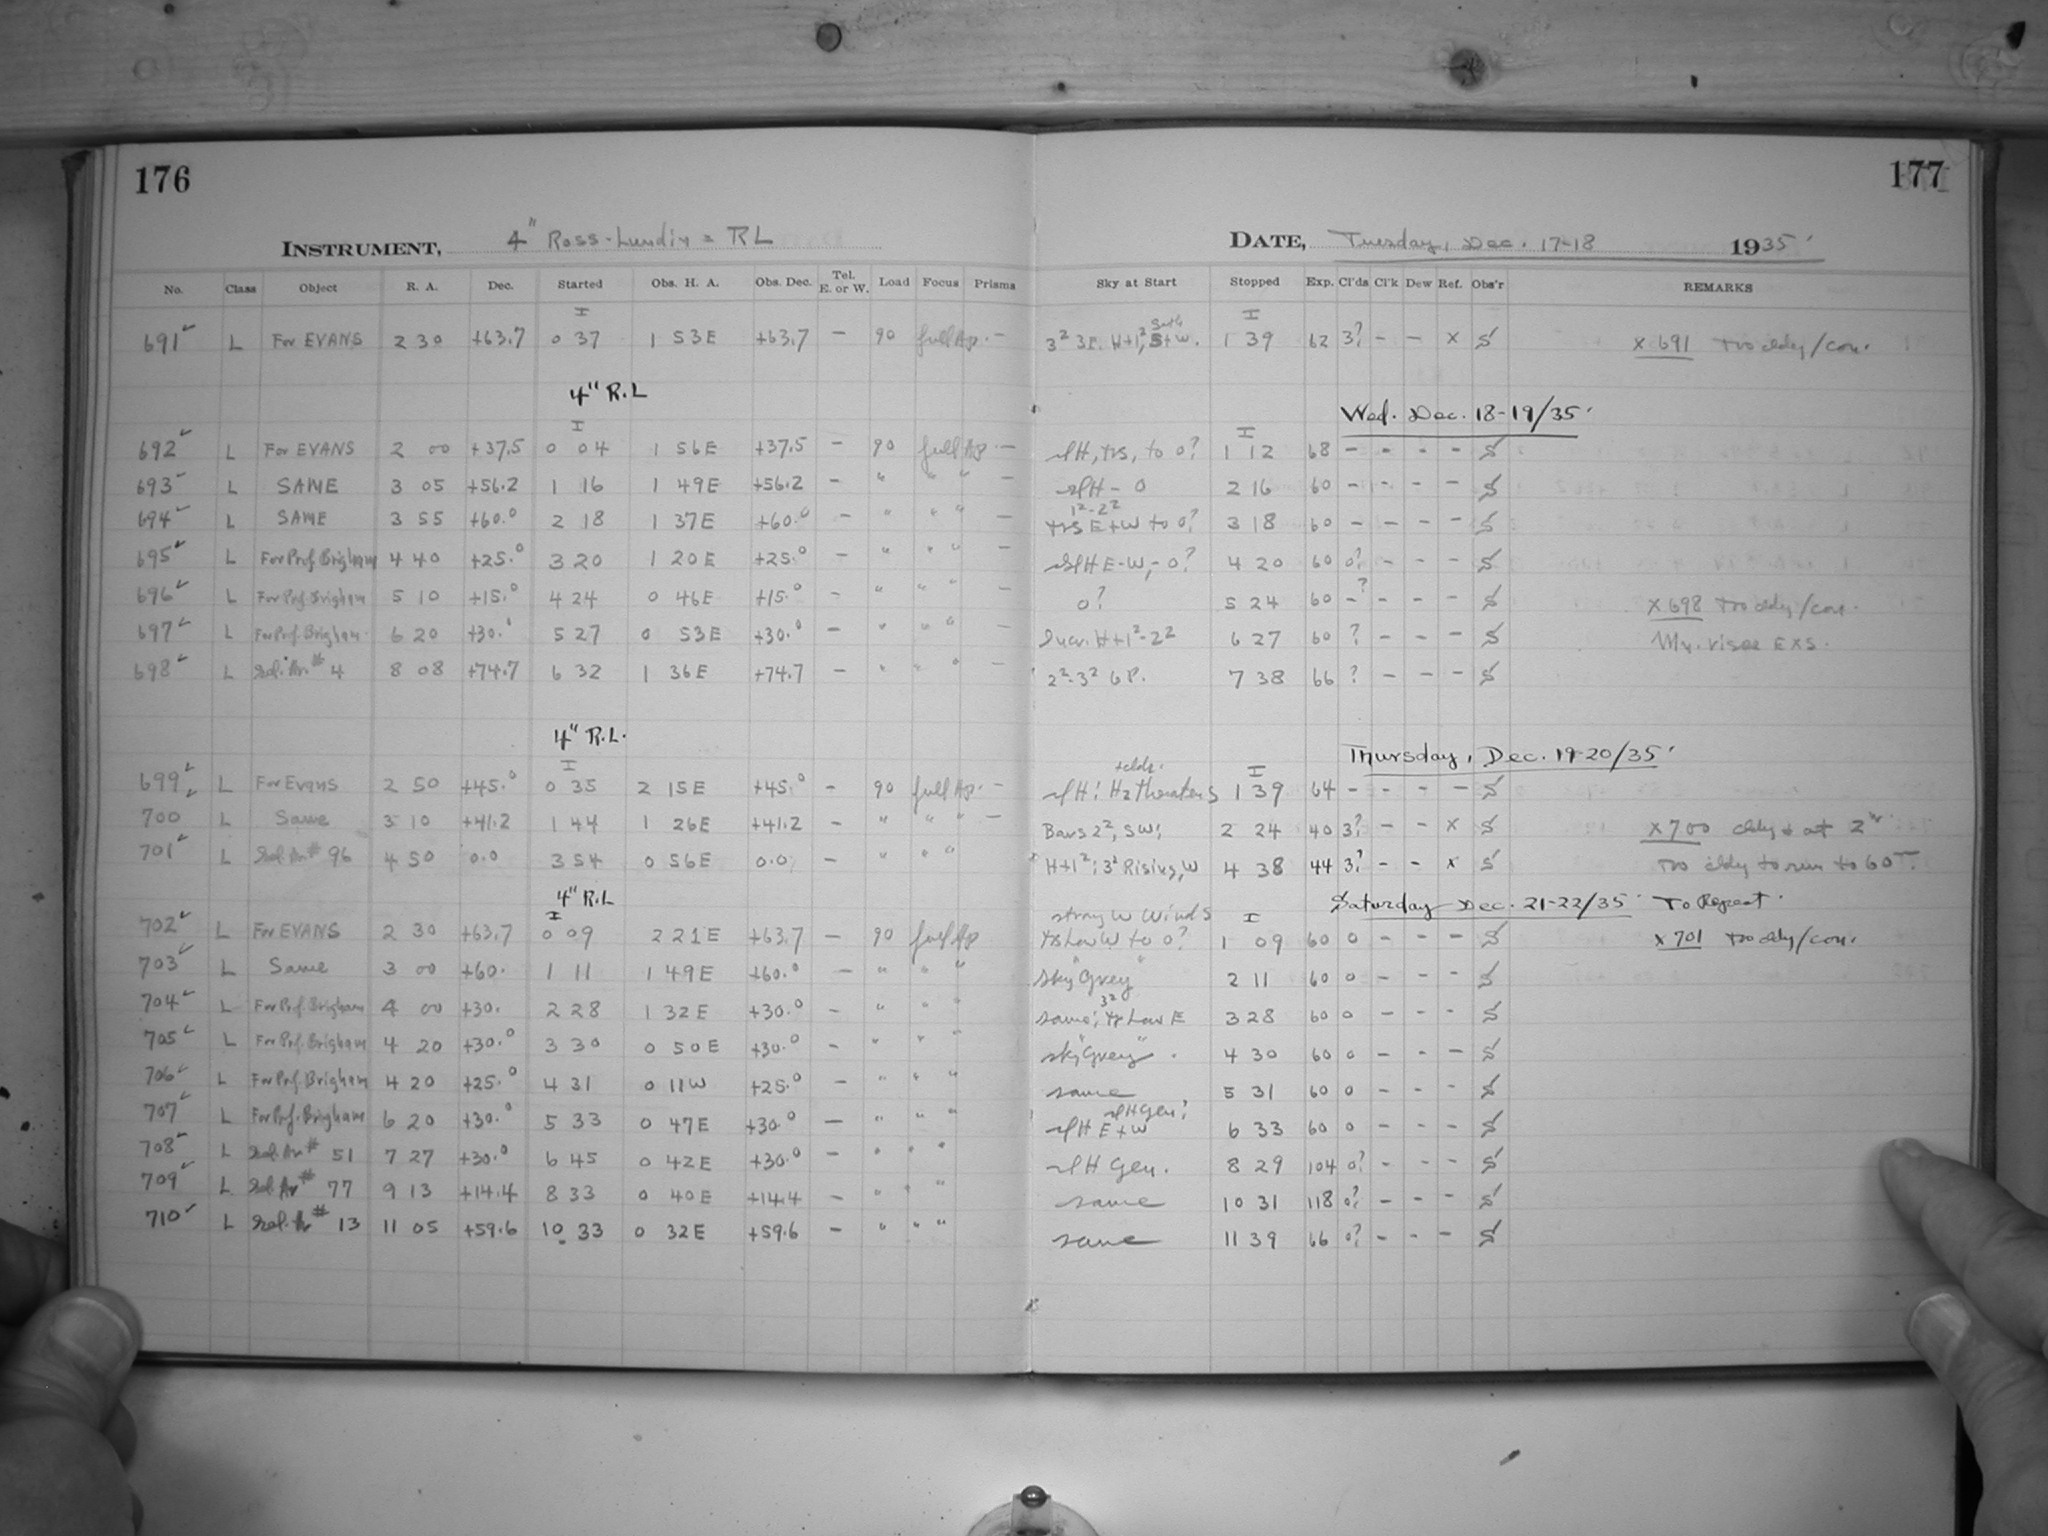 176
177
INSTRUMENT, 4" Ross-Lundin = RL
DATE, Tuesday, Dec. 17-18 1935
No. Class Object R. A. Dec. Started Obs. H. A. Obs. Dec. Tel. E. or W. Load Focus Prisms Sky at Start Stopped Exp. Cl'ds Cl'k Dew Ref. Obs'r REMARKS
691 L For EVANS 2 30 +63.7 0 37 1 53E +63.7 - 90 full Ap. - 1 39 62 3? - - x S x 691 too cldy/con.
4" R.L
Wed. Dec. 18-19/35
692 L For EVANS 2 00 +37.5 0 04 1 56E +37.5 - 90 full Ap - slH, to 0? 1 12 68 - - - - S
693 L SAME 3 05 +56.2 1 16 1 49E +56.2 - " " " - slH - 0 2 16 60 - - - - S
694 L SAME 3 55 +60.0 2 18 1 37E +60.0 - " " " - 1²-2² E+W to 0? 3 18 60 - - - - S
695 L For Prof. Brigham 4 40 +25.0 3 20 1 20E +25.0 - " " " - slH E-W, - 0? 4 20 60 0? - - - S
696 L For Prof. Brigham 5 10 +15.0 4 24 0 46E +15.0 - " " " - 0? 5 24 60 -? - - - S x 698 too cldy/con.
697 L For Prof. Brigham 6 20 +30.0 5 27 0 53E +30.0 - " " " - Incr. H+1²-2² 6 27 60 ? - - - S
698 L Sel. Ar. # 4 8 08 +74.7 6 32 1 36E +74.7 - " " " - 2²-3² 6P. 7 38 66 ? - - - S
4" R.L.
Thursday, Dec. 19-20/35
699 L For Evans 2 50 +45.0 0 35 2 15E +45.0 - 90 full Ap. - +clds. slH; Hz threatens 1 39 64 - - - - S
700 L Same 3 10 +41.2 1 44 1 26E +41.2 - " " " - Bars 2², SW; 2 24 40 3? - - x S x 700 cldy at 2
701 L Sel. Ar # 96 4 50 0.0 3 54 0 56E 0.0 - " " " H+1²; 3² Rising, W 4 38 44 3? - - x S too cldy to run to 60
4" R.L
Saturday Dec. 21-22/35 To Repeat.
702 L For EVANS 2 30 +63.7 0 09 2 21E +63.7 - 90 full Ap strong W Winds low W to 0? 1 09 60 0 - - - S x 701 too cldy/con.
703 L Same 3 00 +60. 1 11 1 49E +60.0 - " " " sky "Grey" 2 11 60 0 - - - S
704 L For Prf. Brigham 4 00 +30. 2 28 1 32E +30.0 - " " " same; 3² low E 3 28 60 0 - - - S
705 L For Prf. Brigham 4 20 +30.0 3 30 0 50E +30.0 - " " " sky "Grey". 4 30 60 0 - - - S
706 L For Prf. Brigham 4 20 +25.0 4 31 0 11W +25.0 - " " " same 5 31 60 0 - - - S
707 L For Prf. Brigham 6 20 +30.0 5 33 0 47E +30.0 - " " " slH Gen; slH E+W 6 33 60 0 - - - S
708 L Sel. Ar # 51 7 27 +30.0 6 45 0 42E +30.0 - " " " slH Gen. 8 29 104 0? - - - S
709 L Sel. Ar # 77 9 13 +14.4 8 33 0 40E +14.4 - " " " same 10 31 118 0? - - - S
710 L Sel. Ar # 13 11 05 +59.6 10 33 0 32E +59.6 - " " " same 11 39 66 0? - - - S